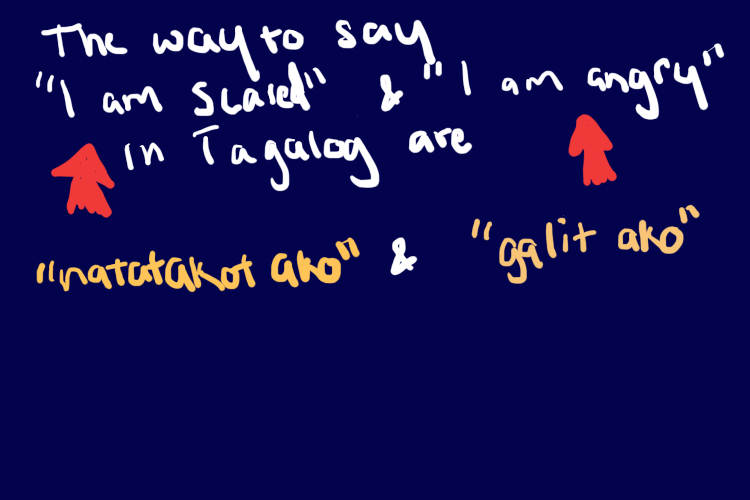 The way to say
"I am scared" & "I am angry"
in Tagalog are
"natatakot ako" & "galit ako"